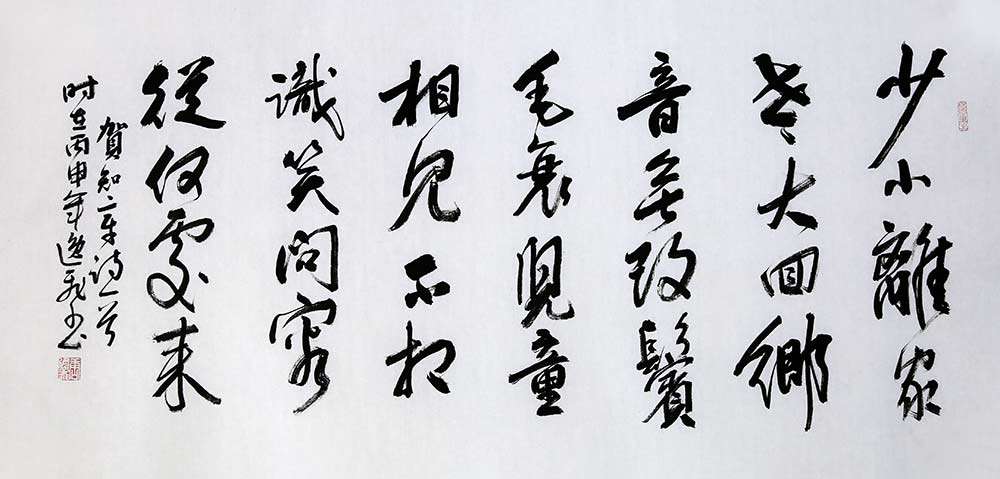 少小離家
老大回鄉
音無改鬢
毛衰兒童
相見不相
識笑問客
從何處来
賀知章诗一首
时在丙申年逸书